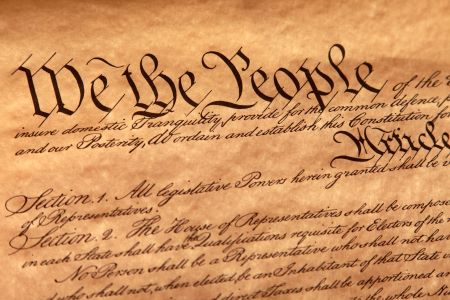 We the People of the
insure domestic Tranquility, provide for the common defence,
and our Posterity, do ordain and establish this Constitution for
Article
Section. 1. All legislative Powers herein granted shall be
of Representatives.
Section. 2. The House of Representatives shall be compose
in each State shall have the Qualifications requisite for Electors of the
No Person shall be a Representative who shall not have
and who shall not, when elected, be an Inhabitant of that State in
direct Taxes shall be apportioned
whole Num